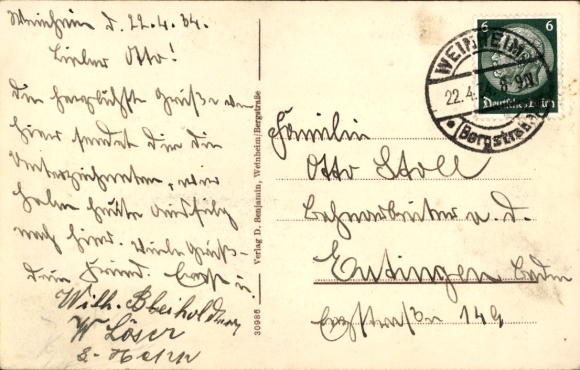 Weinheim d. 22.4.34.
Lieber Otto!
Die herzlichste Grüße von
hier sendet dir die
Unterzeichneten, wir
haben heute Ausflug
nach hier. Viele Grüße
dein Freund. Ernst u.
Wilh.
W Löser
Verlag D. Benjamin, Weinheim/Bergstraße
30986
6 6
Deutsches Reich
WEINHEIM
22.4. 8-9N
(Bergstraße)
Familie
Otto Stoll
Bahnarbeiter a. d.
Eutingen Baden